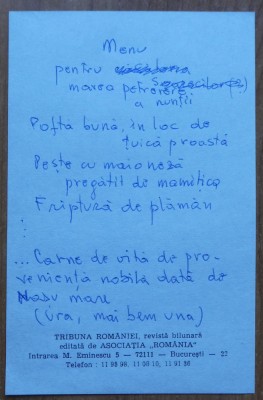 Menu
pentru
marea petrecere
a nunții
Poftă bună, în loc de
țuică proastă
Pește cu maioneză
pregătit de mămițica
Friptură de plămân
...Carne de vită de pro-
veniență nobilă dată de
Nașu mare
(Ura, mai bem una)
TRIBUNA ROMÂNIEI, revistă bilunară
editată de ASOCIAȚIA „ROMÂNIA"
Intrarea M. Eminescu 5 — 72111 — București — 37
Telefon : 11 98 98, 11 90 10, 11 91 56